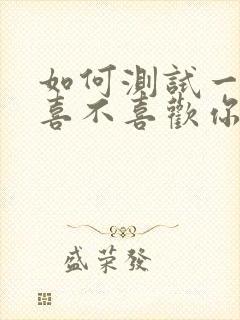 如何測試一
喜不喜歡你
盛荣發